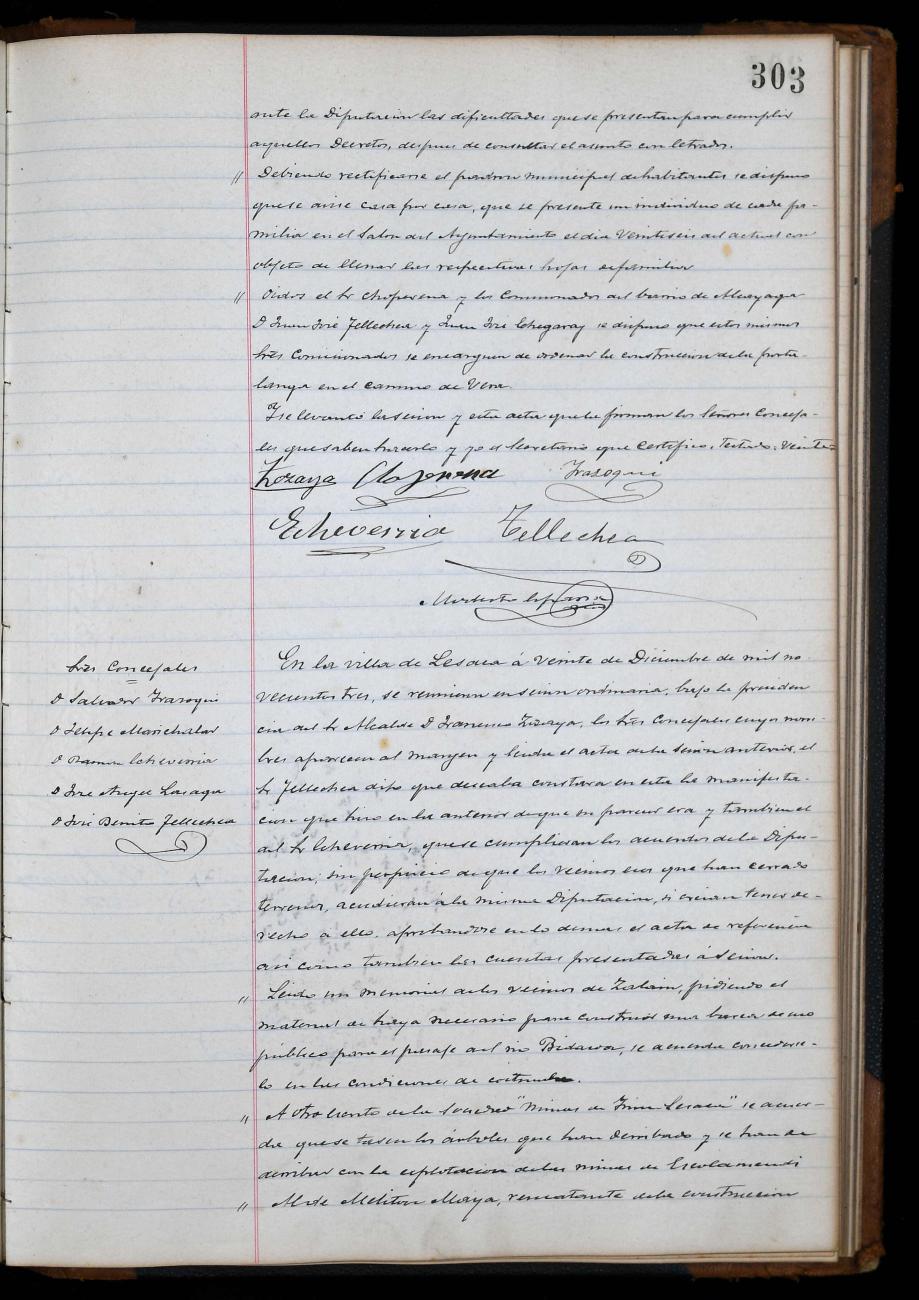 303
ante la Diputacion las dificultades que se presentan para cumplir
aquellos Decretos, despues de consultar el asunto con letrados.
" Debiendo rectificarse el padron municipal de habitantes se dispuso
que se avise casa por casa, que se presente un individuo de cada fa-
milia en el Salon del Ayuntamiento el dia Veintiseis del actual con
objeto de llenar las respectivas hojas de familia
" Oidos el Sr Choperena y los Comisionados del barrio de Alcayaga
D Juan José Tellechea y Juan José Echegaray se dispuso que estos mismos
tres Comisionados se encarguen de ordenar la construccion de la
en el camino de Vera.
Y se levantó la sesion y esta acta que la firman los Señores Conceja-
les que saben hacerlo y yo el Secretario que Certifico. Testado. Veinte
Zozaya Choperena Irazoqui
Echeverria Tellechea
Modesto Esparza
Sres Concejales
D Salvador Irazoqui
D Felipe Marichalar
D Ramon Echeverria
D José Angel Lasaga
D José Benito Tellechea
En la villa de Lesaca á Veinte de Diciembre de mil no-
vecientos tres, se reunieron en sesion ordinaria, bajo la presiden
cia del Sr Alcalde D Francisco Zozaya, los Sres Concejales cuyos nom-
bres aparecen al margen y leida el acta de la sesion anterior, el
Sr Tellechea dijo que deseaba constara en esta la manifesta-
cion que hizo en la anterior de que su parecer era y tambien el
del Sr Echeverria, que se cumplieran los acuerdos de la Dipu-
tacion, sin perjuicio de que los vecinos esos que han cerrado
terrenos, acudieran á la misma Diputacion, si creian tener de-
recho a ello, aprobandose en lo demas el acta de referencia
asi como tambien las cuentas presentadas á sesion.
" Leido un memorial de los vecinos de Zalain, pidiendo el
material de haya necesario para construir una barca de uso
público para el pasaje del rio Bidasoa, se acuerda concederse-
lo en las condiciones de costumbre.
" A otro escrito de la Sociedad "Minas de Irun Lesaca" se acuer-
da que se tasen los árboles que han derribado y se han de
derribar con la explotacion de las minas de Escolamendi
" Al de Meliton Maya, rematante de la construccion